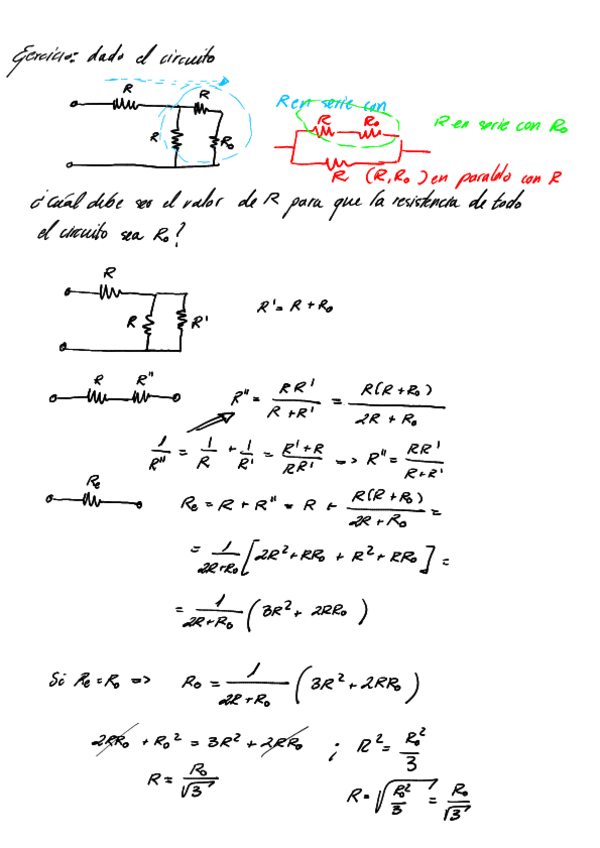 Ejercicio: dado el circuito
R R
R R₀
R en serie con
R R₀
R en serie con R₀
R (R,R₀) en paralelo con R
¿Cuál debe ser el valor de R para que la resistencia de todo
el circuito sea R₀?
R
R R'
R' = R + R₀
R R"
R" = RR' / (R + R') = R(R + R₀) / (2R + R₀)
1/R" = 1/R + 1/R' = (R' + R) / RR' => R" = RR' / (R + R')
Re
Re = R + R" = R + R(R + R₀) / (2R + R₀) =
= 1/(2R+R₀) [2R² + RR₀ + R² + RR₀] =
= 1/(2R+R₀) (3R² + 2RR₀)
Si Re = R₀ => R₀ = 1/(2R+R₀) (3R² + 2RR₀)
2RR₀ + R₀² = 3R² + 2RR₀ ; R² = R₀²/3
R = R₀/√3 R = √(R₀²/3) = R₀/√3